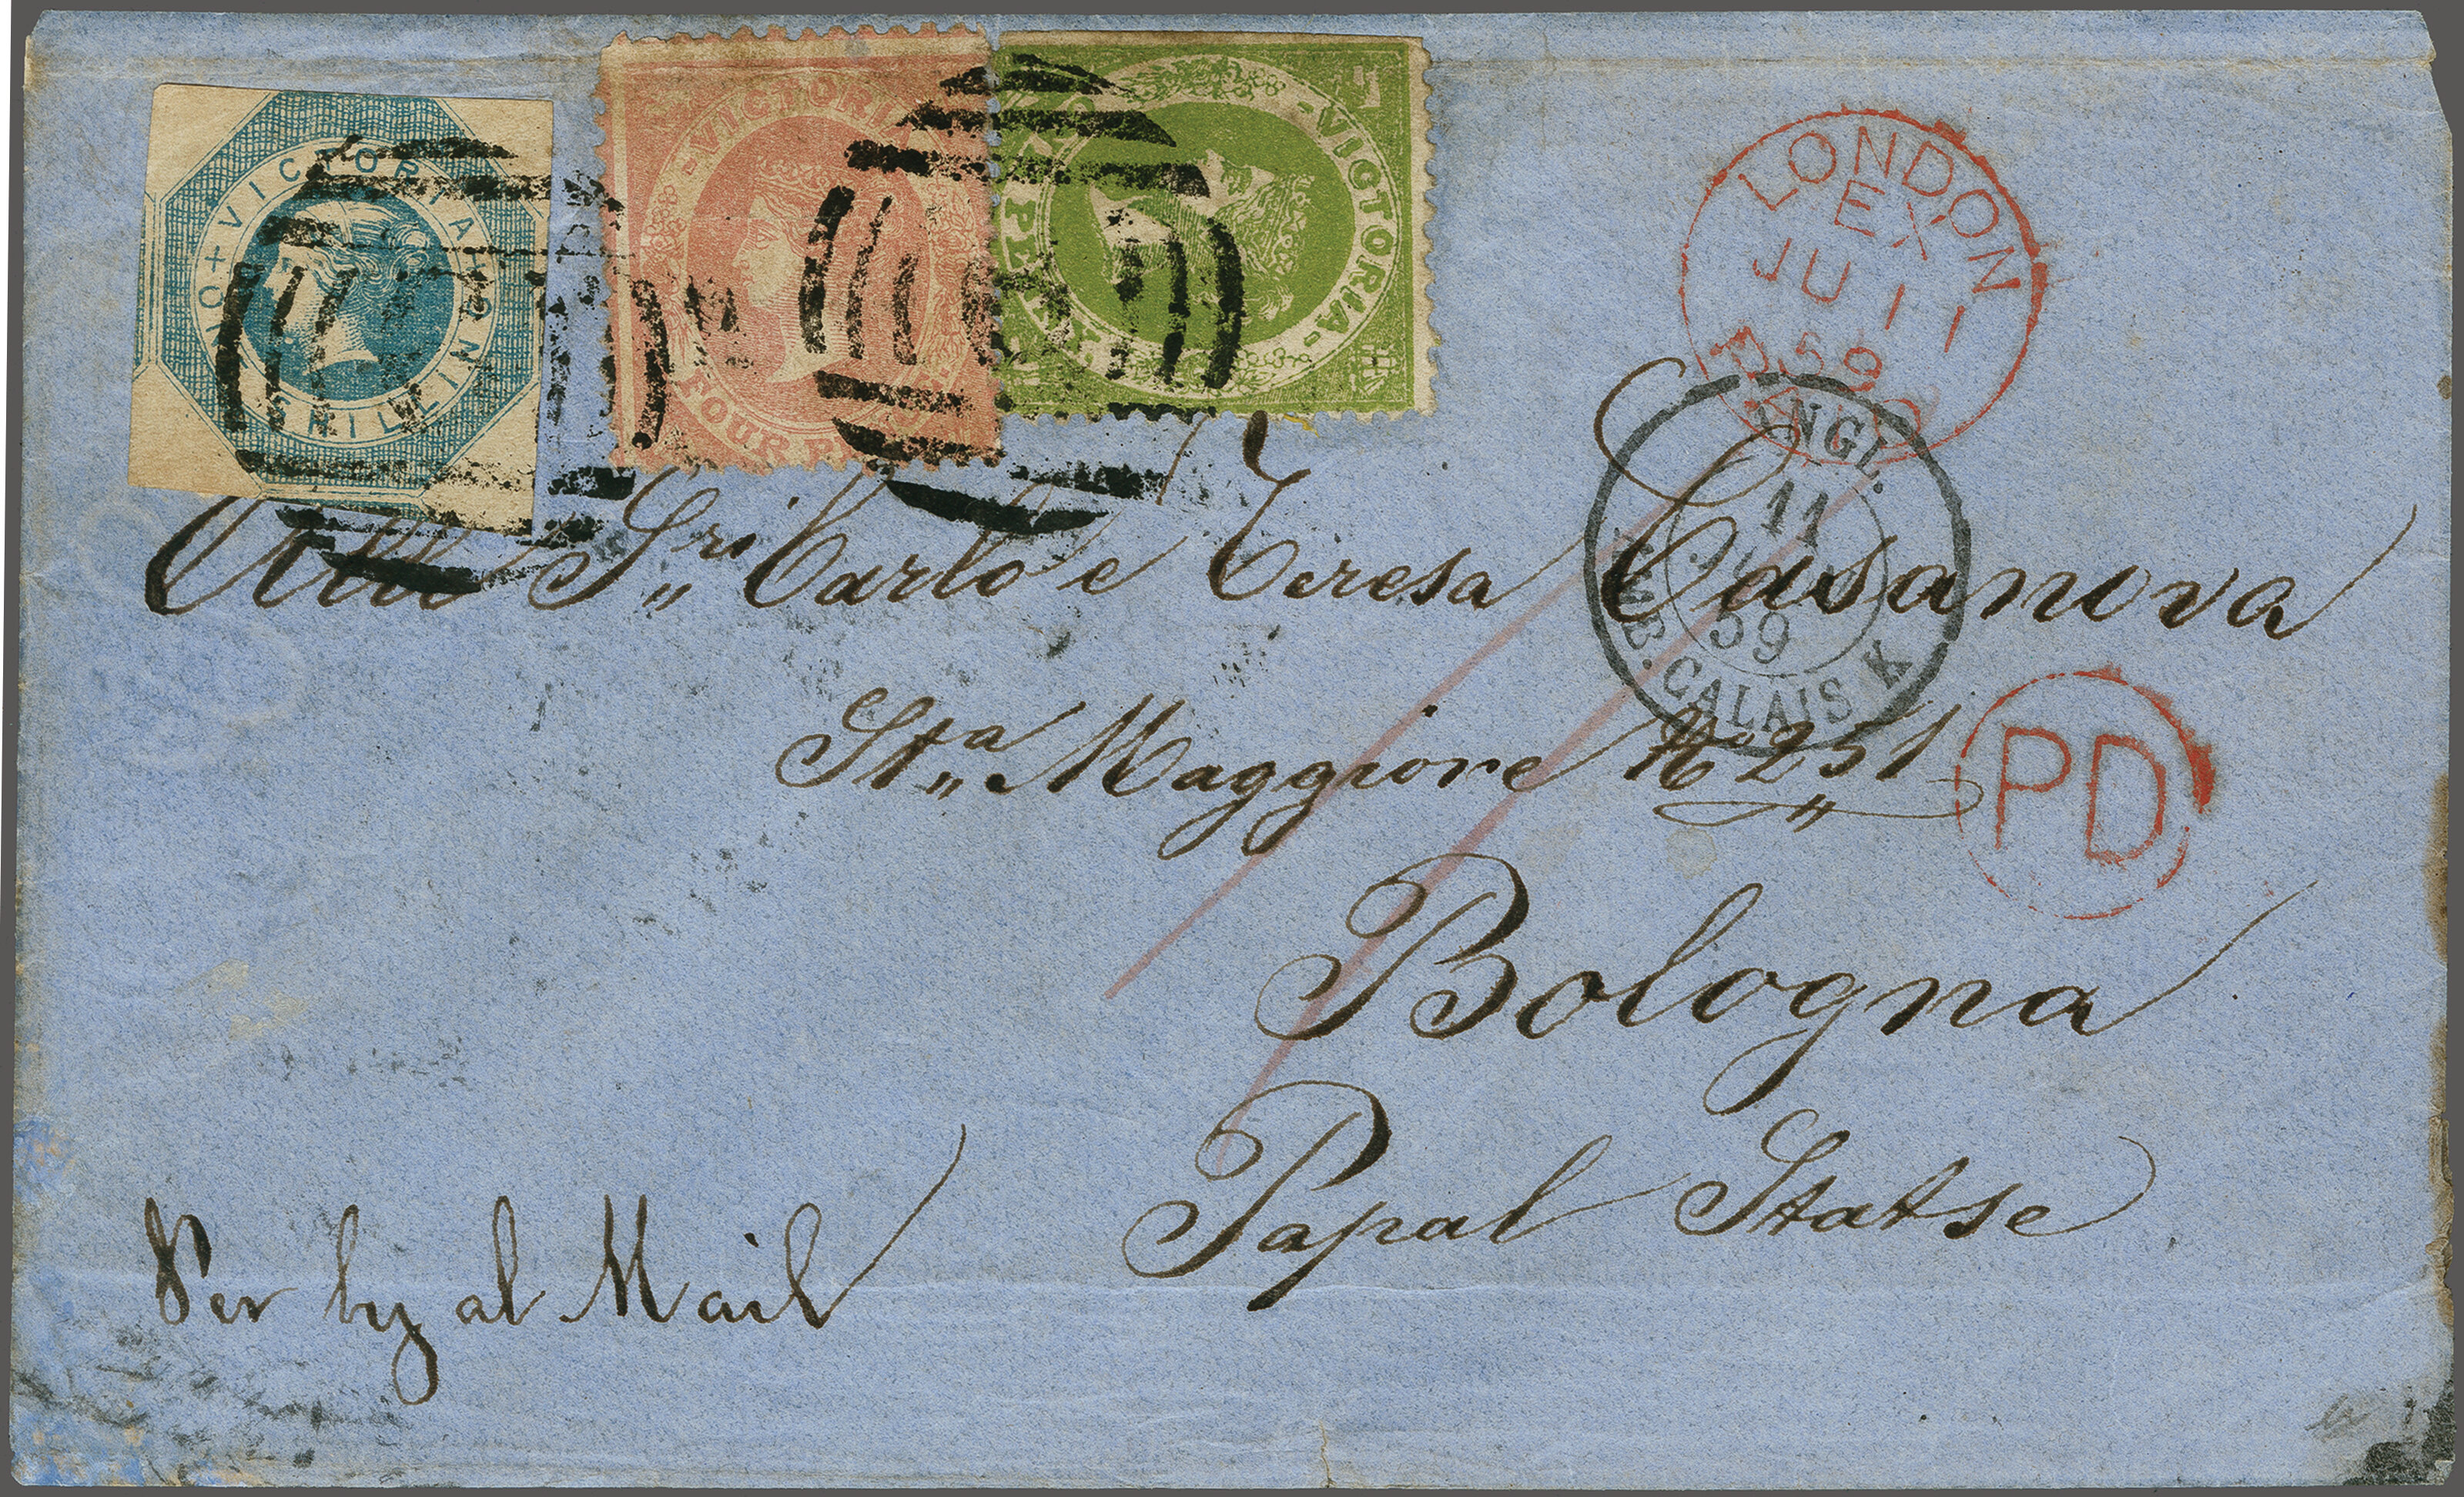 VICTORIA
ONE SHILLING
VICTORIA
FOUR PENCE
VICTORIA
PENNY
LONDON
EX
JU 11
59
PAID
ANGL.
11
JUIN
59
AMB. CALAIS K
Alli Sri Carlo e Teresa Casanova
Sta Maggiore No 251
PD
Bologna
Papal Statse
Per by al Mail